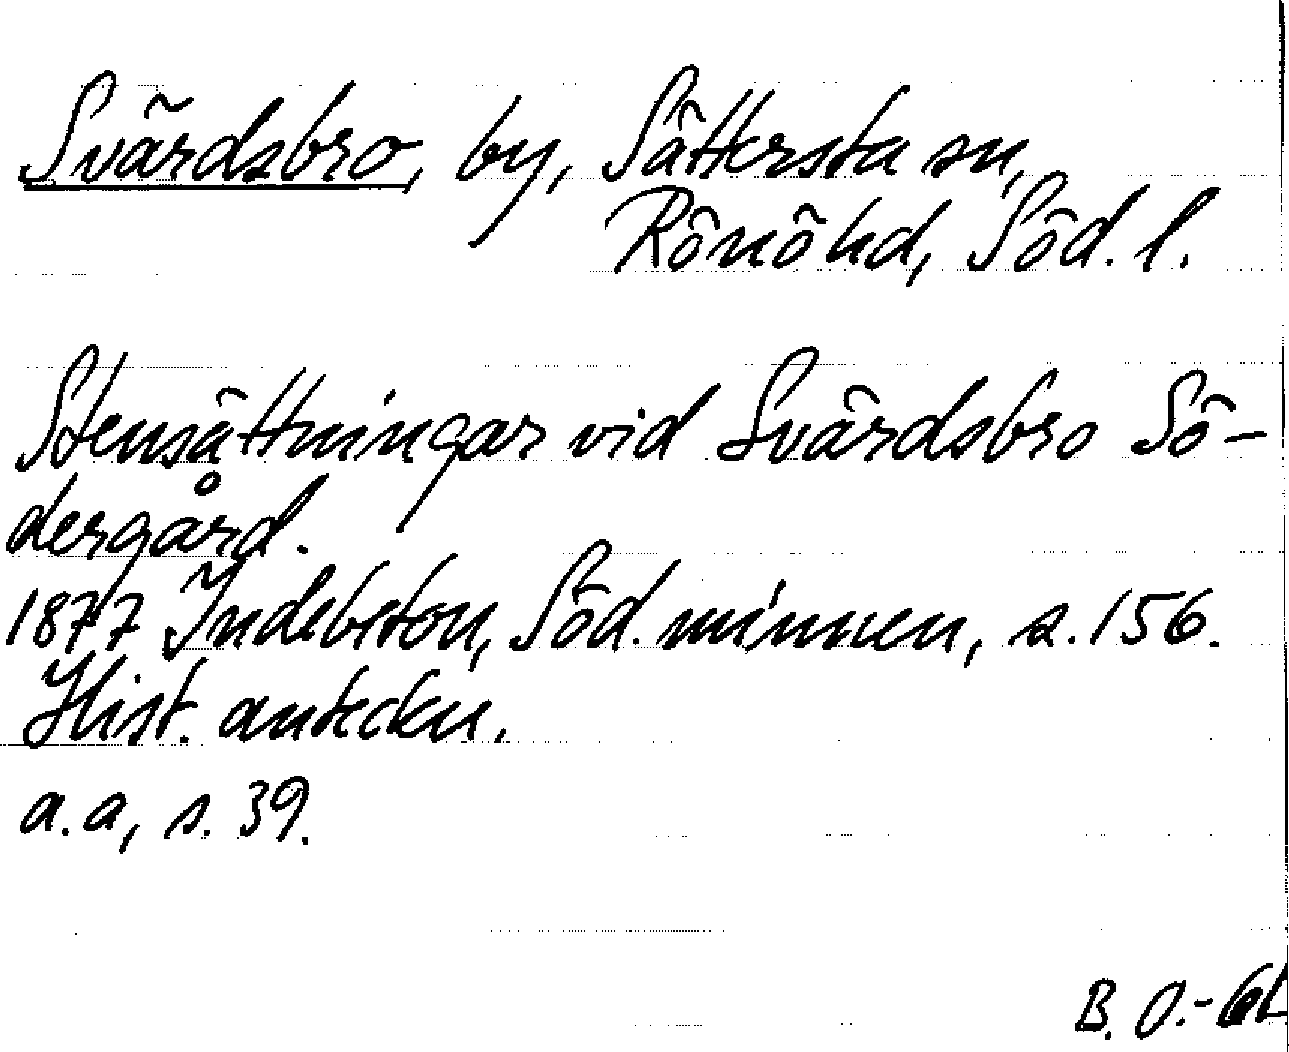 Svärdsbro, by, Sättersta sn,
Rönö hd, Söd. l.
Stensättningar vid Svärdsbro Sö-
dergård.
1877 Indebetou, Söd. minnen, s. 156.
Hist. anteckn.
a. a, s. 39.
B. O.-